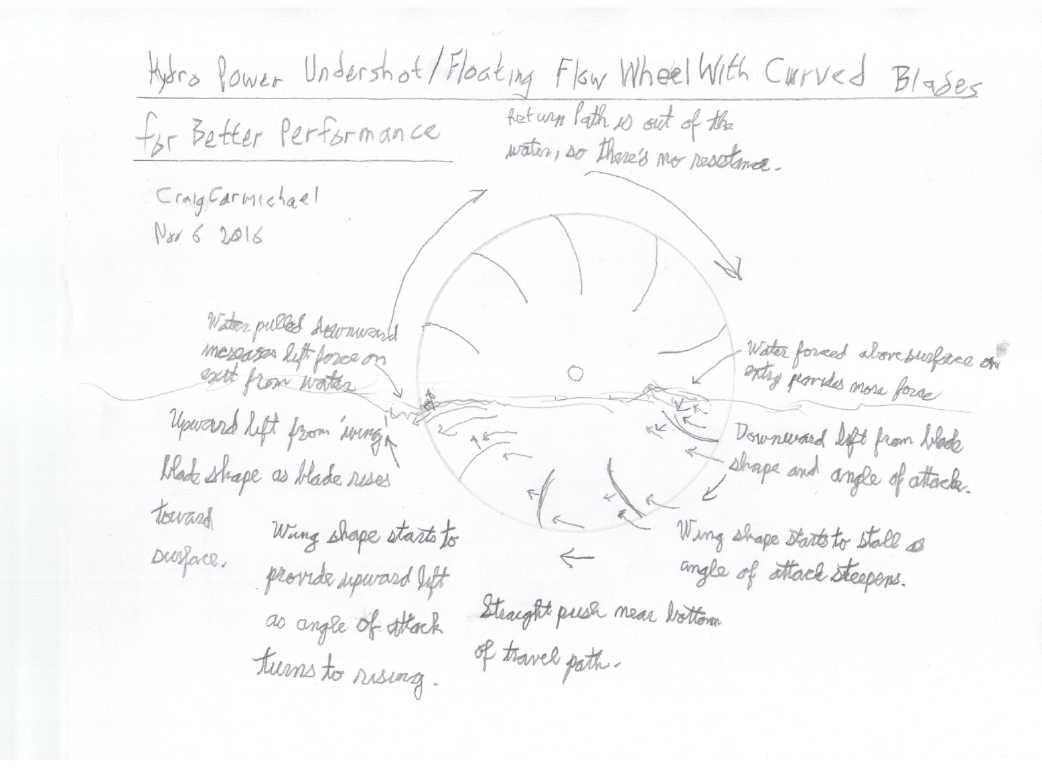 Hydro Power Undershot/Floating Flow Wheel With Curved Blades
for Better Performance
Craig Carmichael
Nov 6 2016
Return Path is out of the
water, so there's no resistance.
Water pulled downward
increases lift force on
exit from water
Water forced above surface on
entry provides more force
Upward lift from 'wing'
blade shape as blade rises
toward
surface.
Downward lift from blade
shape and angle of attack.
Wing shape starts to
provide upward lift
as angle of attack
turns to rising.
Wing shape starts to stall as
angle of attack steepens.
Straight push near bottom
of travel path.